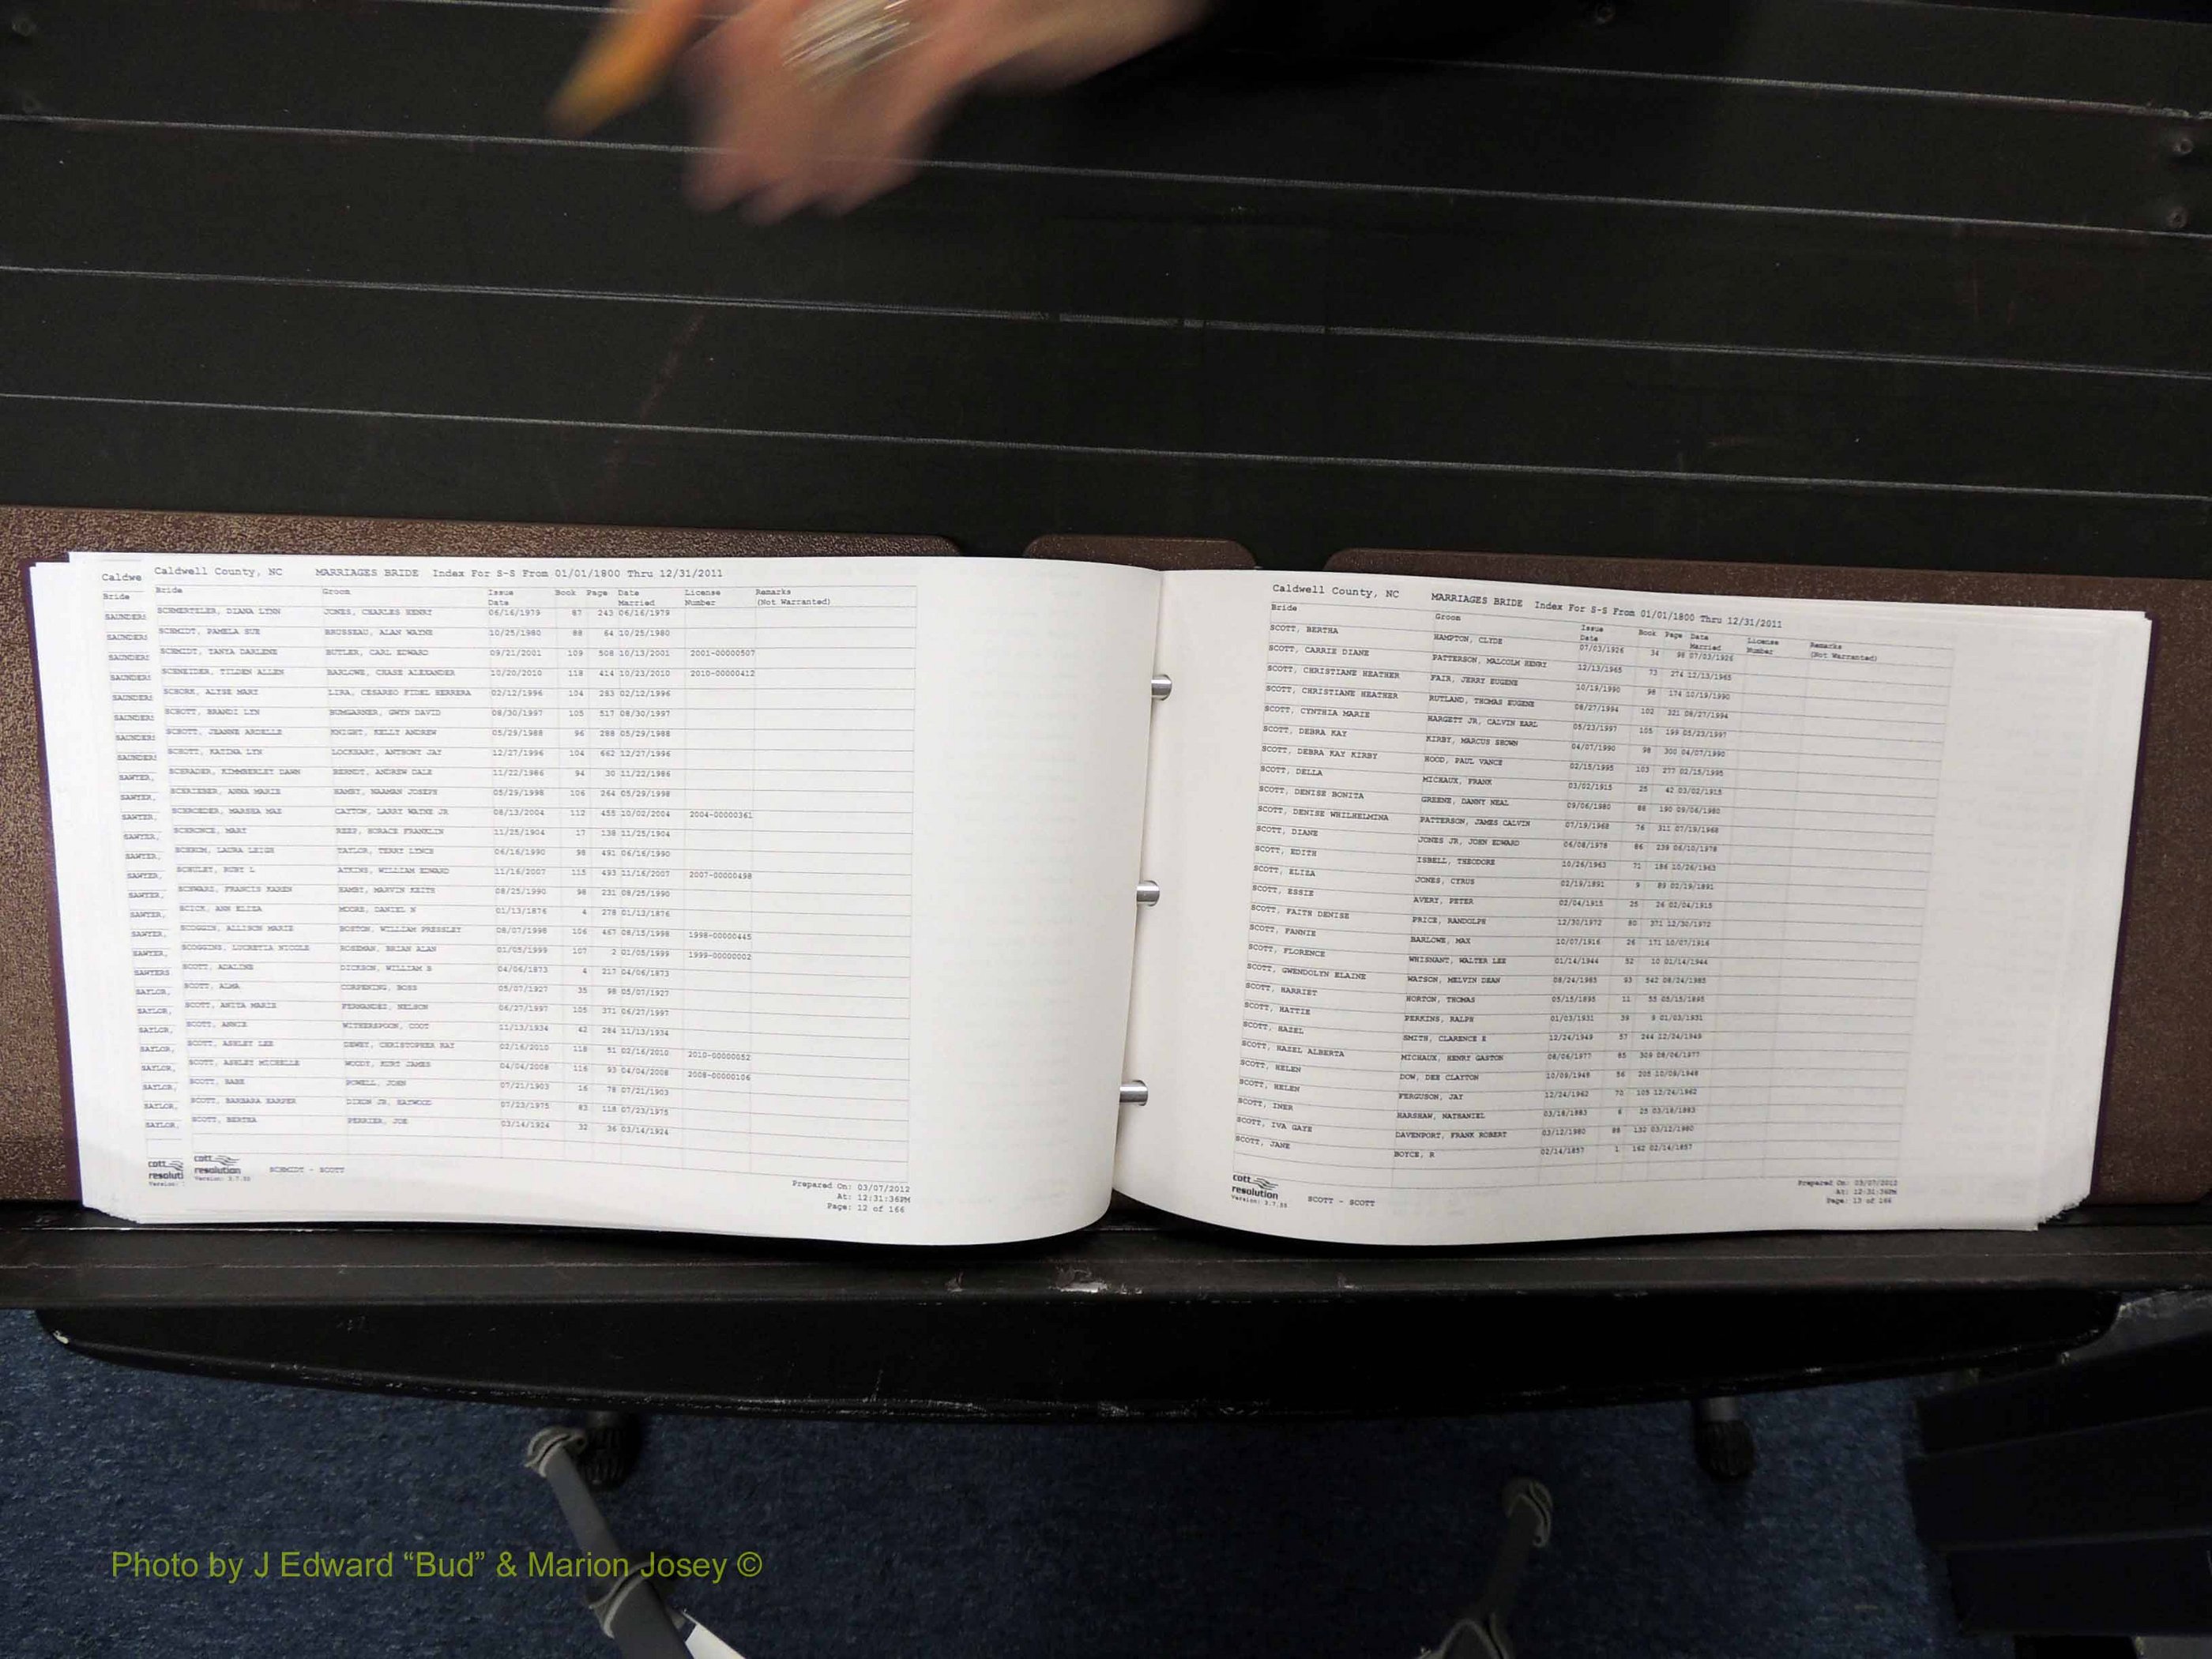 Caldwe
Bride
SAUNDERS
SAUNDERS
SAUNDERS
SAUNDERS
SAUNDERS
SAUNDERS
SAUNDERS
SAUNDERS
SAWYER,
SAWYER,
SAWYER,
SAWYER,
SAWYER,
SAWYER,
SAWYER,
SAWYER,
SAWYER,
SAWYER,
SAWYERS
SAYLOR,
SAYLOR,
SAYLOR,
SAYLOR,
SAYLOR,
SAYLOR,
SAYLOR,
SAYLOR,
cott
resoluti
Version:
Caldwell County, NC MARRIAGES BRIDE Index For S-S From 01/01/1800 Thru 12/31/2011
Bride Groom Issue Date Book Page Date Married License Number Remarks (Not Warranted)
SCHMERTELER, DIANA LYNN JONES, CHARLES HENRY 06/16/1979 87 243 06/16/1979
SCHMIDT, PAMELA SUE BRUSSEAU, ALAN WAYNE 10/25/1980 88 64 10/25/1980
SCHMIDT, TANYA DARLENE BUTLER, CARL EDWARD 09/21/2001 109 508 10/13/2001 2001-00000507
SCHNEIDER, TILDEN ALLEN BARLOWE, CHASE ALEXANDER 10/20/2010 118 414 10/23/2010 2010-00000412
SCHORK, ALYSE MARY LIRA, CESAREO FIDEL HERRERA 02/12/1996 104 253 02/12/1996
SCHOTT, BRANDI LYN BUMGARNER, GWYN DAVID 08/30/1997 105 517 08/30/1997
SCHOTT, JEANNE ARDELLE KNIGHT, KELLY ANDREW 05/29/1988 96 288 05/29/1988
SCHOTT, KATINA LYN LOCKHART, ANTHONY JAY 12/27/1996 104 662 12/27/1996
SCHRADER, KIMMBERLEY DAWN BERNDT, ANDREW DALE 11/22/1986 94 30 11/22/1986
SCHRIEBER, ANNA MARIE HAMBY, NAAMAN JOSEPH 05/29/1998 106 264 05/29/1998
SCHROEDER, MARSHA MAE CAYTON, LARRY WAYNE JR 08/13/2004 112 455 10/02/2004 2004-00000361
SCHRONCE, MARY REEP, HORACE FRANKLIN 11/25/1904 17 139 11/25/1904
SCHRUM, LAURA LEIGH TAYLOR, TERRY LYNCH 06/16/1990 98 491 06/16/1990
SCHULEY, RUBY L ATKINS, WILLIAM EDWARD 11/16/2007 115 493 11/16/2007 2007-00000498
SCHWARZ, FRANCIS KAREN HAMBY, MARVIN KEITH 08/25/1990 98 231 08/25/1990
SCICK, ANN ELIZA MOORE, DANIEL N 01/13/1876 4 278 01/13/1876
SCOGGIN, ALLISON MARIE BOSTON, WILLIAM PRESSLEY 08/07/1998 106 467 08/15/1998 1998-00000445
SCOGGINS, LUCRETIA NICOLE ROSEMAN, BRIAN ALAN 01/05/1999 107 2 01/05/1999 1999-00000002
SCOTT, ADALINE DICKSON, WILLIAM S 04/06/1873 4 217 04/06/1873
SCOTT, ALMA CORPENING, BOSS 05/07/1927 35 98 05/07/1927
SCOTT, ANITA MARIE FERNANDEZ, NELSON 06/27/1997 105 371 06/27/1997
SCOTT, ANNIE WITHERSPOON, COOT 11/13/1934 42 284 11/13/1934
SCOTT, ASHLEY LEE DEWEY, CHRISTOPHER RAY 02/16/2010 118 51 02/16/2010 2010-00000052
SCOTT, ASHLEY MICHELLE WOODY, KURT JAMES 04/04/2008 116 93 04/04/2008 2008-00000106
SCOTT, BABE POWELL, JOHN 07/21/1903 16 78 07/21/1903
SCOTT, BARBARA HARPER DIXON JR, HAYWOOD 07/23/1975 83 118 07/23/1975
SCOTT, BERTHA PERRIER, JOE 03/14/1924 32 36 03/14/1924
cott
resolution
Version: 3.7.55
SCHMIDT - SCOTT
Prepared On: 03/07/2012
At: 12:31:36PM
Page: 12 of 166
Caldwell County, NC MARRIAGES BRIDE Index For S-S From 01/01/1800 Thru 12/31/2011
Bride Groom Issue Date Book Page Date Married License Number Remarks (Not Warranted)
SCOTT, BERTHA HAMPTON, CLYDE 07/03/1926 34 98 07/03/1926
SCOTT, CARRIE DIANE PATTERSON, MALCOLM HENRY 12/13/1965 73 274 12/13/1965
SCOTT, CHRISTIANE HEATHER FAIR, JERRY EUGENE 10/19/1990 98 174 10/19/1990
SCOTT, CHRISTIANE HEATHER RUTLAND, THOMAS EUGENE 08/27/1994 102 321 08/27/1994
SCOTT, CYNTHIA MARIE HARGETT JR, CALVIN EARL 05/23/1997 105 199 05/23/1997
SCOTT, DEBRA KAY KIRBY, MARCUS SHOWN 04/07/1990 98 300 04/07/1990
SCOTT, DEBRA KAY KIRBY HOOD, PAUL VANCE 02/15/1995 103 277 02/15/1995
SCOTT, DELLA MICHAUX, FRANK 03/02/1915 25 42 03/02/1915
SCOTT, DENISE BONITA GREENE, DANNY NEAL 09/06/1980 88 190 09/06/1980
SCOTT, DENISE WHILHELMINA PATTERSON, JAMES CALVIN 07/19/1968 76 311 07/19/1968
SCOTT, DIANE JONES JR, JOHN EDWARD 06/08/1978 86 239 06/10/1978
SCOTT, EDITH ISBELL, THEODORE 10/26/1963 71 186 10/26/1963
SCOTT, ELIZA JONES, CYRUS 02/19/1891 9 89 02/19/1891
SCOTT, ESSIE AVERY, PETER 02/04/1915 25 26 02/04/1915
SCOTT, FAITH DENISE PRICE, RANDOLPH 12/30/1972 80 371 12/30/1972
SCOTT, FANNIE BARLOWE, MAX 10/07/1916 26 171 10/07/1916
SCOTT, FLORENCE WHISNANT, WALTER LEE 01/14/1944 52 10 01/14/1944
SCOTT, GWENDOLYN ELAINE WATSON, MELVIN DEAN 08/24/1985 93 542 08/24/1985
SCOTT, HARRIET HORTON, THOMAS 05/15/1895 11 55 05/15/1895
SCOTT, HATTIE PERKINS, RALPH 01/03/1931 39 9 01/03/1931
SCOTT, HAZEL SMITH, CLARENCE E 12/24/1949 57 244 12/24/1949
SCOTT, HAZEL ALBERTA MICHAUX, HENRY GASTON 08/06/1977 85 309 08/06/1977
SCOTT, HELEN DOW, DEE CLAYTON 10/09/1948 56 205 10/09/1948
SCOTT, HELEN FERGUSON, JAY 12/24/1962 70 105 12/24/1962
SCOTT, INER HARSHAW, NATHANIEL 03/18/1883 6 25 03/18/1883
SCOTT, IVA GAYE DAVENPORT, FRANK ROBERT 03/12/1980 88 132 03/12/1980
SCOTT, JANE BOYCE, R 02/14/1857 1 162 02/14/1857
cott
resolution
Version: 3.7.55
SCOTT - SCOTT
Prepared On: 03/07/2012
At: 12:31:36PM
Page: 13 of 166
Photo by J Edward “Bud” & Marion Josey ©